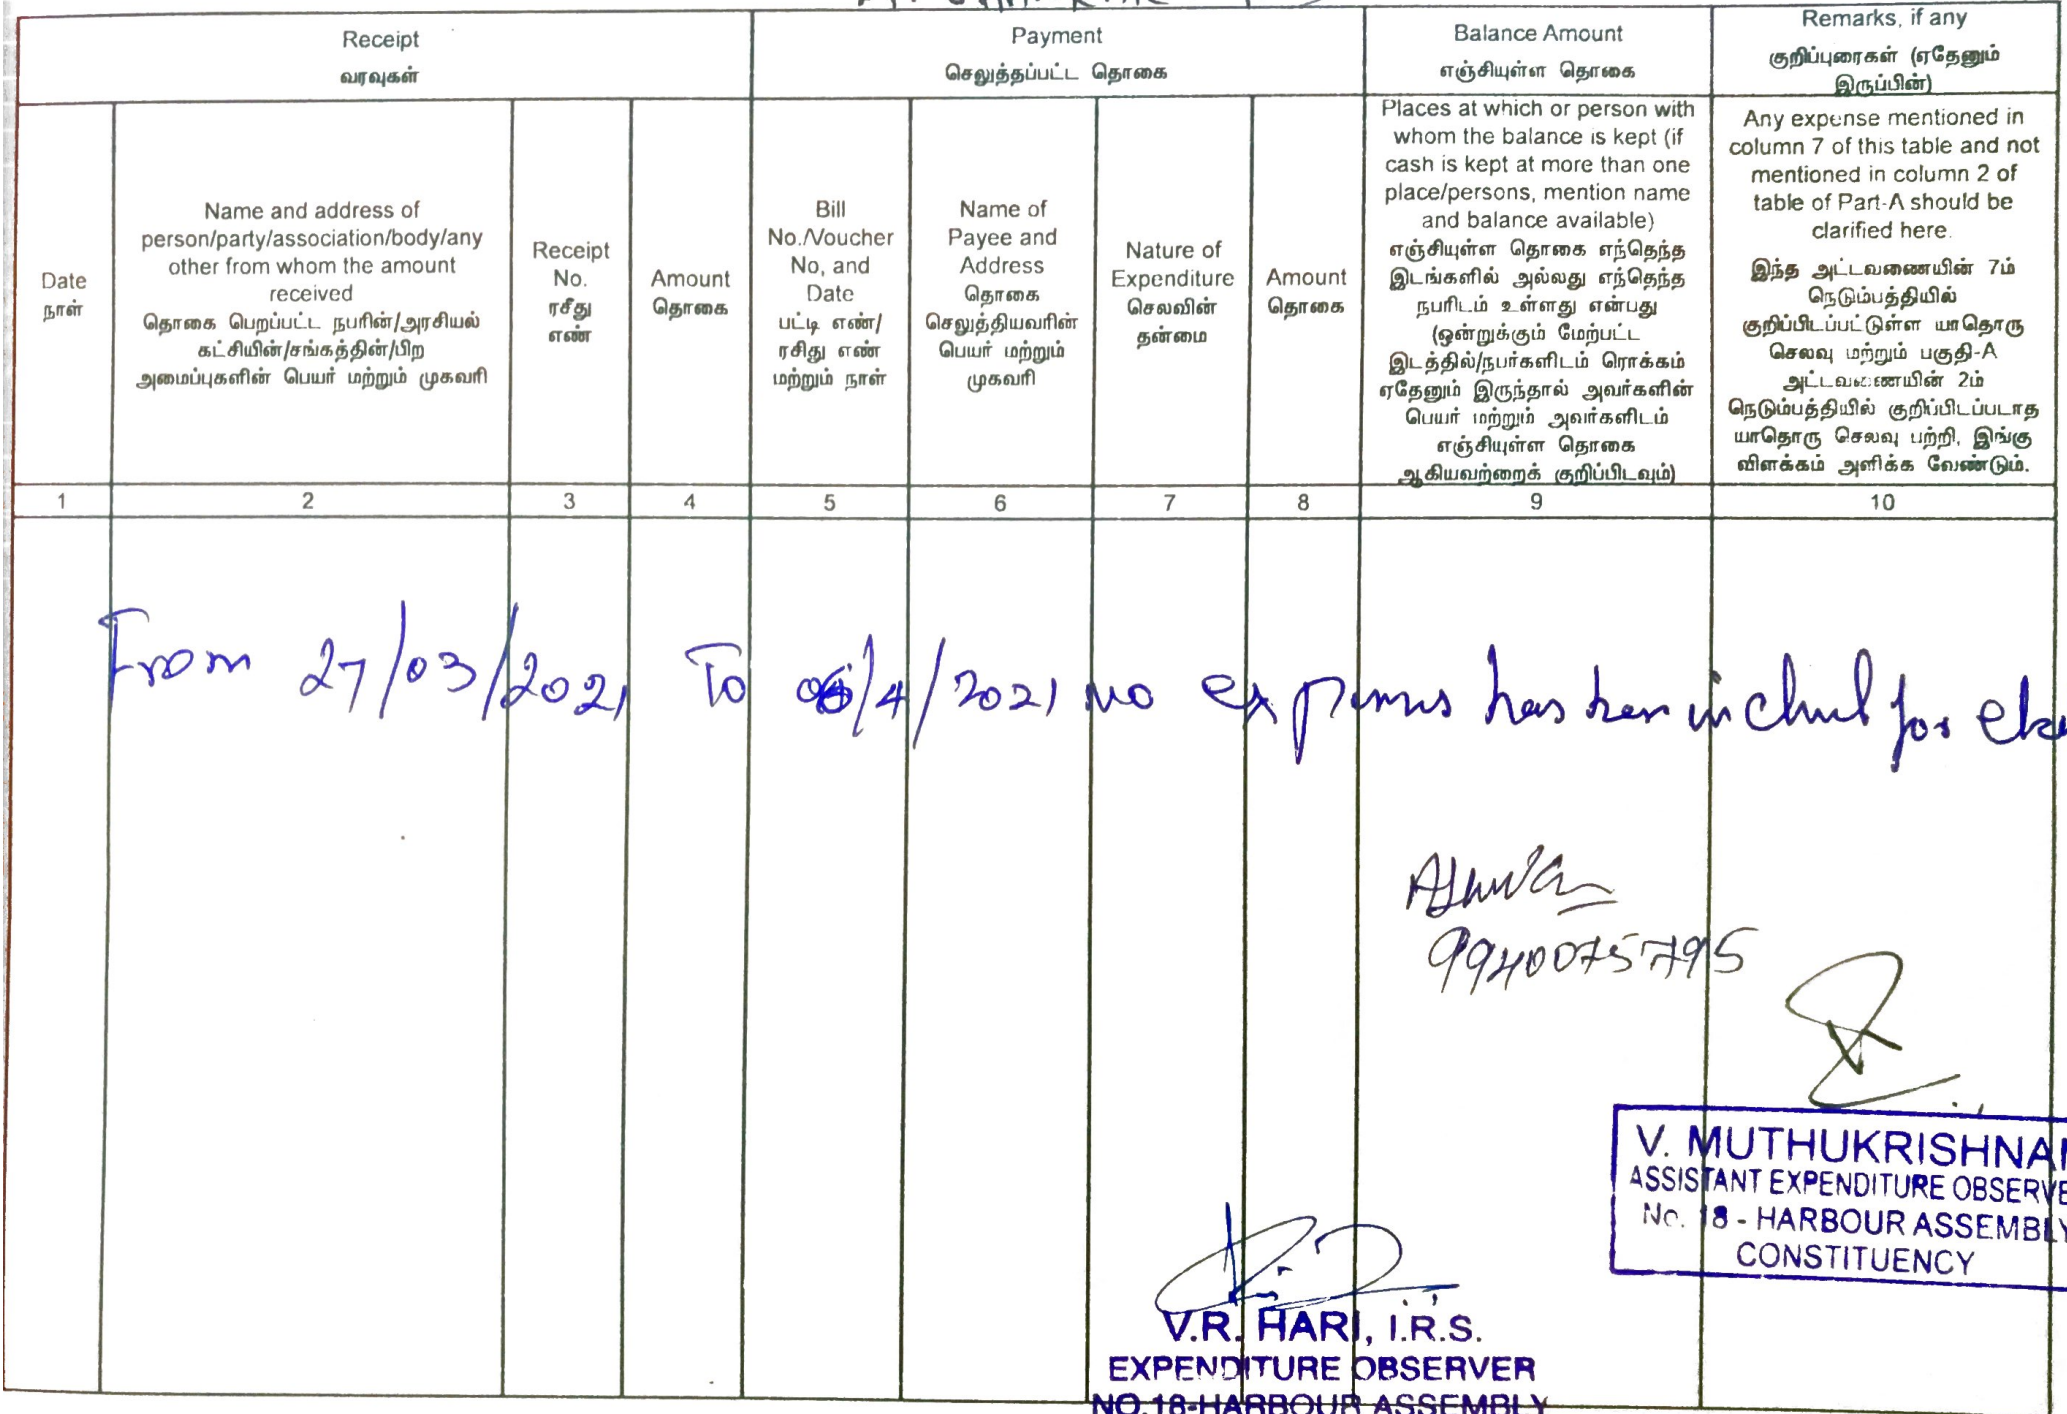 Receipt
வரவுகள்
Payment
செலுத்தப்பட்ட தொகை
Balance Amount
எஞ்சியுள்ள தொகை
Remarks, if any
குறிப்புரைகள் (ஏதேனும்
இருப்பின்)
Date
நாள்
Name and address of
person/party/association/body/any
other from whom the amount
received
தொகை பெறப்பட்ட நபரின்/அரசியல்
கட்சியின்/சங்கத்தின்/பிற
அமைப்புகளின் பெயர் மற்றும் முகவரி
Receipt
No.
ரசீது
எண்
Amount
தொகை
Bill
No./Voucher
No, and
Date
பட்டி எண்/
ரசிது எண்
மற்றும் நாள்
Name of
Payee and
Address
தொகை
செலுத்தியவரின்
பெயர் மற்றும்
முகவரி
Nature of
Expenditure
செலவின்
தன்மை
Amount
தொகை
Places at which or person with
whom the balance is kept (if
cash is kept at more than one
place/persons, mention name
and balance available)
எஞ்சியுள்ள தொகை எந்தெந்த
இடங்களில் அல்லது எந்தெந்த
நபரிடம் உள்ளது என்பது
(ஒன்றுக்கும் மேற்பட்ட
இடத்தில்/நபர்களிடம் ரொக்கம்
ஏதேனும் இருந்தால் அவர்களின்
பெயர் மற்றும் அவர்களிடம்
எஞ்சியுள்ள தொகை
ஆகியவற்றைக் குறிப்பிடவும்)
Any expense mentioned in
column 7 of this table and not
mentioned in column 2 of
table of Part-A should be
clarified here.
இந்த அட்டவணையின் 7ம்
நெடும்பத்தியில்
குறிப்பிடப்பட்டுள்ள யாதொரு
செலவு மற்றும் பகுதி-A
அட்டவணையின் 2ம்
நெடும்பத்தியில் குறிப்பிடப்படாத
யாதொரு செலவு பற்றி, இங்கு
விளக்கம் அளிக்க வேண்டும்.
1 2 3 4 5 6 7 8 9 10
From 27/03/2021 To 06/4/2021 no expenses has been for
9940075795
V. MUTHUKRISHNAN
ASSISTANT EXPENDITURE OBSERVE
No. 18 - HARBOUR ASSEMBLY
CONSTITUENCY
V.R. HARI, I.R.S.
EXPENDITURE OBSERVER
NO.18-HARBOUR ASSEMBLY